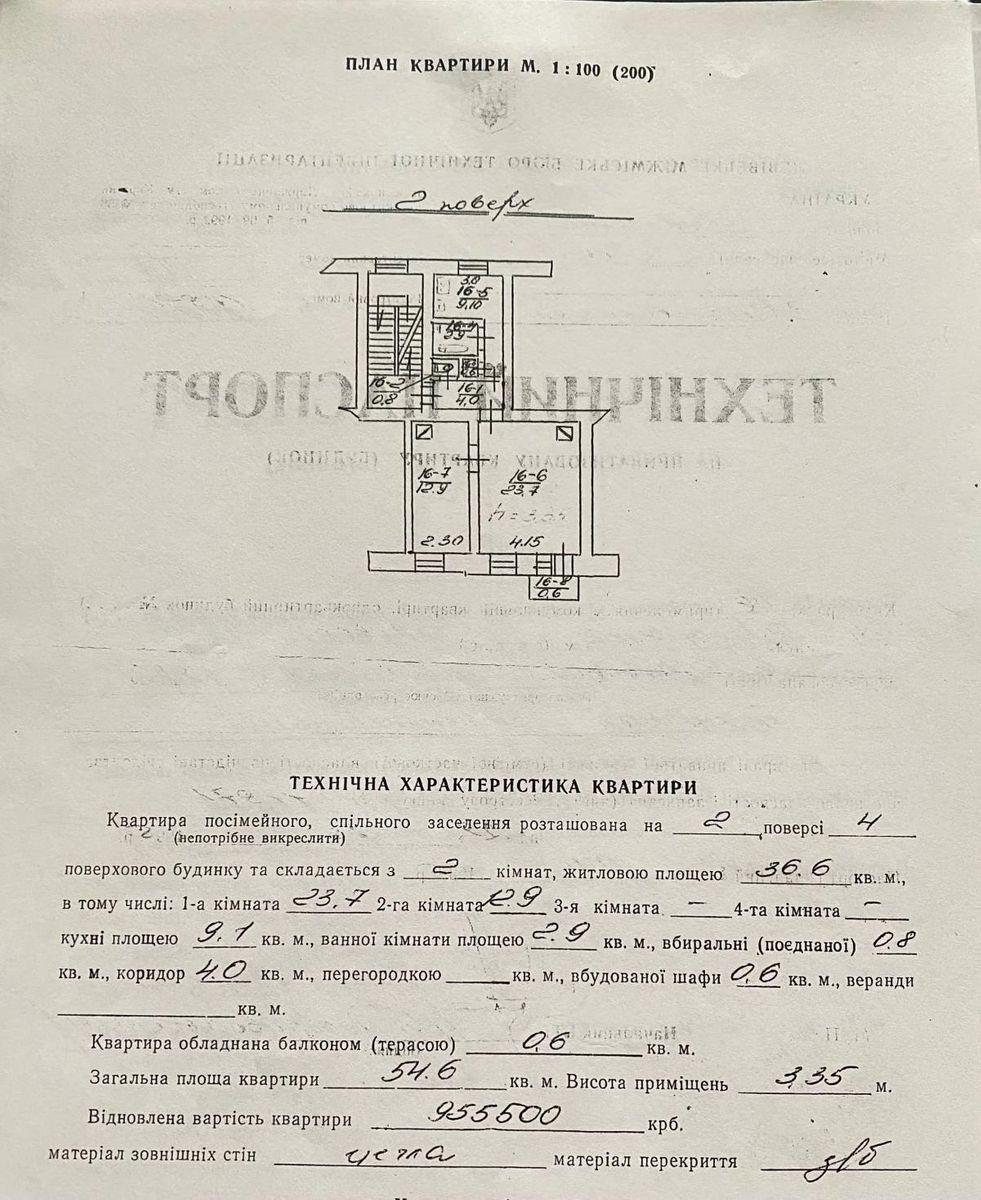 ПЛАН КВАРТИРИ М. 1 : 100 (200)
2 поверх
3,0
16-5
9,10
16-4
2,9
16-2
0,8
16-1
4,0
16-7
12.9
16-6
23,7
2.30
4.15
16-8
0,6
ТЕХНІЧНИЙ ПАСПОРТ
НА ПРИВАТИЗОВАНУ КВАРТИРУ (БУДИНОК)
ТЕХНІЧНА ХАРАКТЕРИСТИКА КВАРТИРИ
Квартира посімейного, спільного заселення розташована на 2 поверсі 4
(непотрібне викреслити)
поверхового будинку та складається з 2 кімнат, житловою площею 36.6 кв. м.,
в тому числі: 1-а кімната 23,7 2-га кімната 12.9 3-я кімната – 4-та кімната –
кухні площею 9,1 кв. м., ванної кімнати площею 2.9 кв. м., вбиральні (поєднаної) 0,8
кв. м., коридор 4,0 кв. м., перегородкою ______ кв. м., вбудованої шафи 0,6 кв. м., веранди
______ кв. м.
Квартира обладнана балконом (терасою) 0,6 кв. м.
Загальна площа квартири 54.6 кв. м. Висота приміщень 3,35 м.
Відновлена вартість квартири 955500 крб.
матеріал зовнішніх стін цегла матеріал перекриття з/б